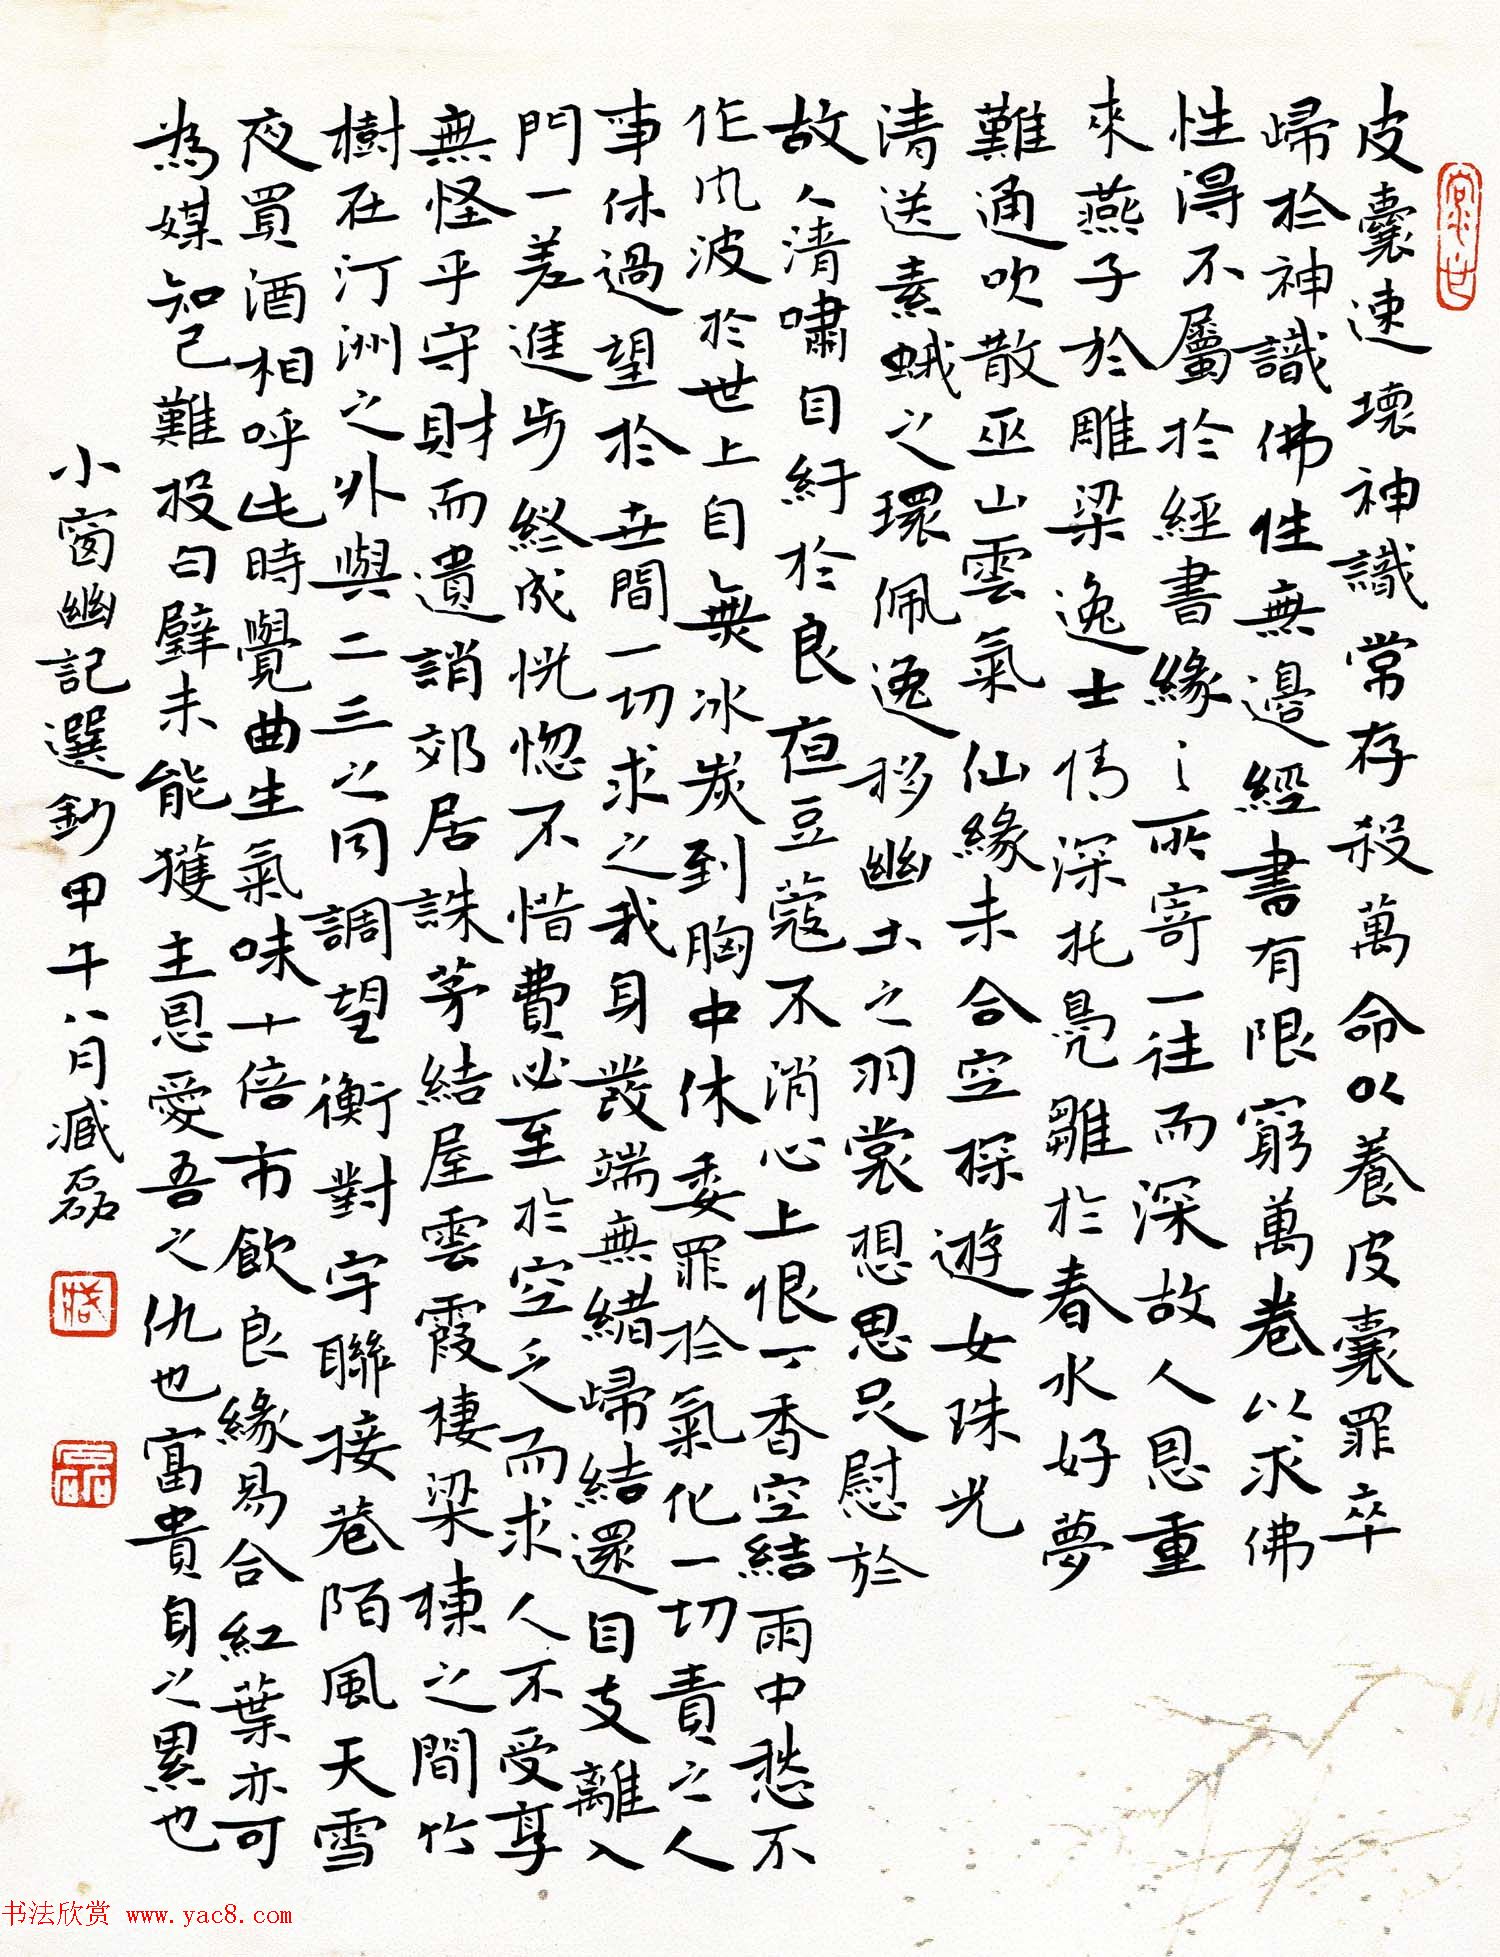 皮囊速壞神識常存殺萬命以養皮囊罪卒
歸於神識佛性無邊經書有限窮萬卷以求佛
性得不屬於經書緣之所寄一往而深故人恩重
來燕子於雕梁逸士情深托鳧雛於春水好夢
難通吹散巫山雲氣仙緣未合空探遊女珠光
清送素蛾之環佩逸移幽士之羽裳想思足慰於
故人清嘯自紆於良夜豆蔻不消心上恨丁香空結雨中愁不
作風波於世上自無冰炭到胸中休委罪於氣化一切責之人
事休過望於世間一切求之我身發端無緒歸結還自支離入
門一差進步終成恍惚不惜費必至於空乏而求人不受享
無怪乎守財而遺誚郊居誅茅結屋雲霞棲梁棟之間竹
樹在汀洲之外與二三之同調望衡對宇聯接巷陌風天雪
夜買酒相呼此時覺曲生氣味十倍市飲良緣易合紅葉亦可
為媒知己難投白璧未能獲主恩愛吾之仇也富貴身之累也
小窗幽記選鈔甲午八月臧磊
臧
磊
书法欣赏 www.yac8.com